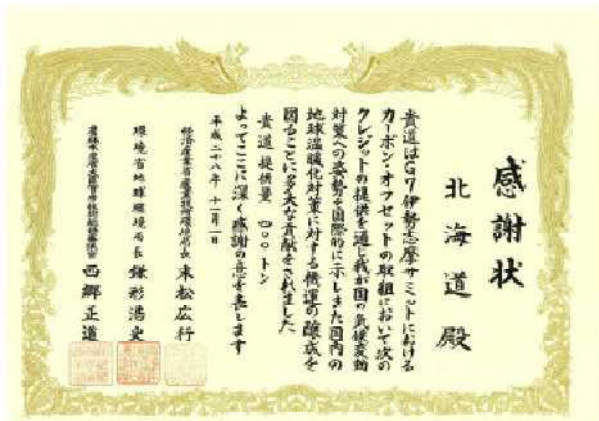 感謝状
北海道殿
貴道はG7伊勢志摩サミットにおける
カーボン・オフセットの取組において次の
クレジットの提供を通じ我が国の気候変動
対策への姿勢を国際的に示しまた国内の
地球温暖化対策に対する機運の醸成を
図ることに多大な貢献をされました
貴道提供量 四〇〇トン
よってここに深く感謝の意を表します
平成二十八年十一月一日
経済産業省産業技術環境局長 末松広行
環境省地球環境局長 鎌形浩史
農林水産省大臣官房政策立案総括審議官 西郷正道